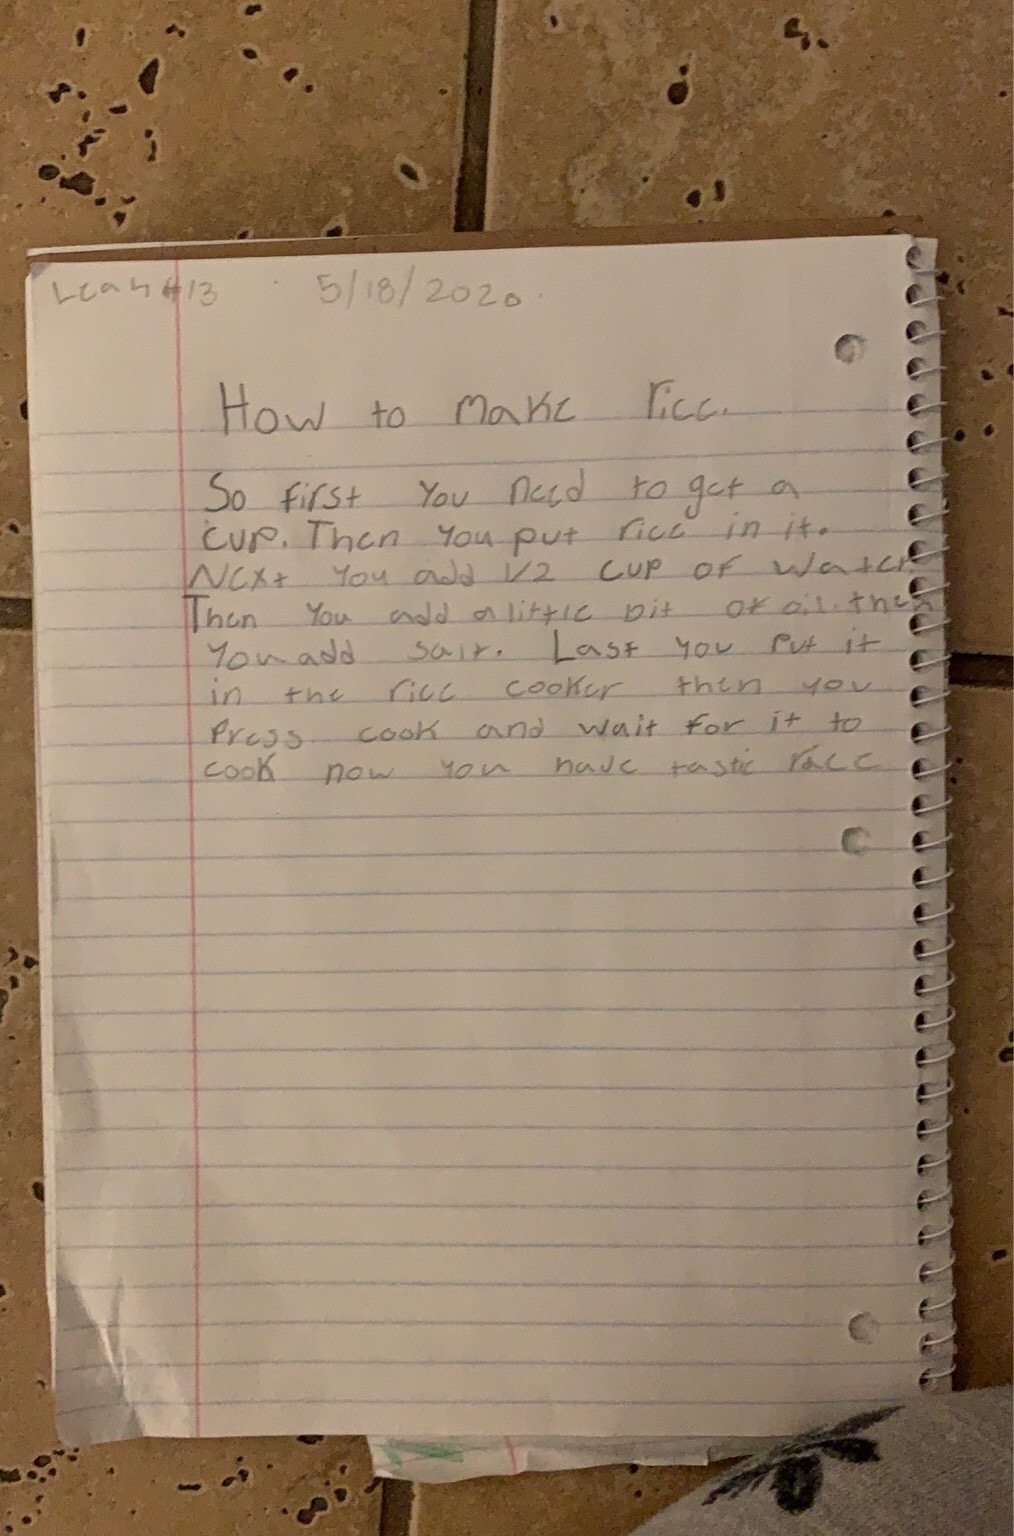 Leah #13 5/18/2020
How to make rice.
So first you need to get a
cup. Then you put rice in it.
Next you add 1/2 cup of water
Then you add a little bit of oil. then
you add salt. Last you put it
in the rice cooker then you
Press cook and wait for it to
cook now you have tastie rice